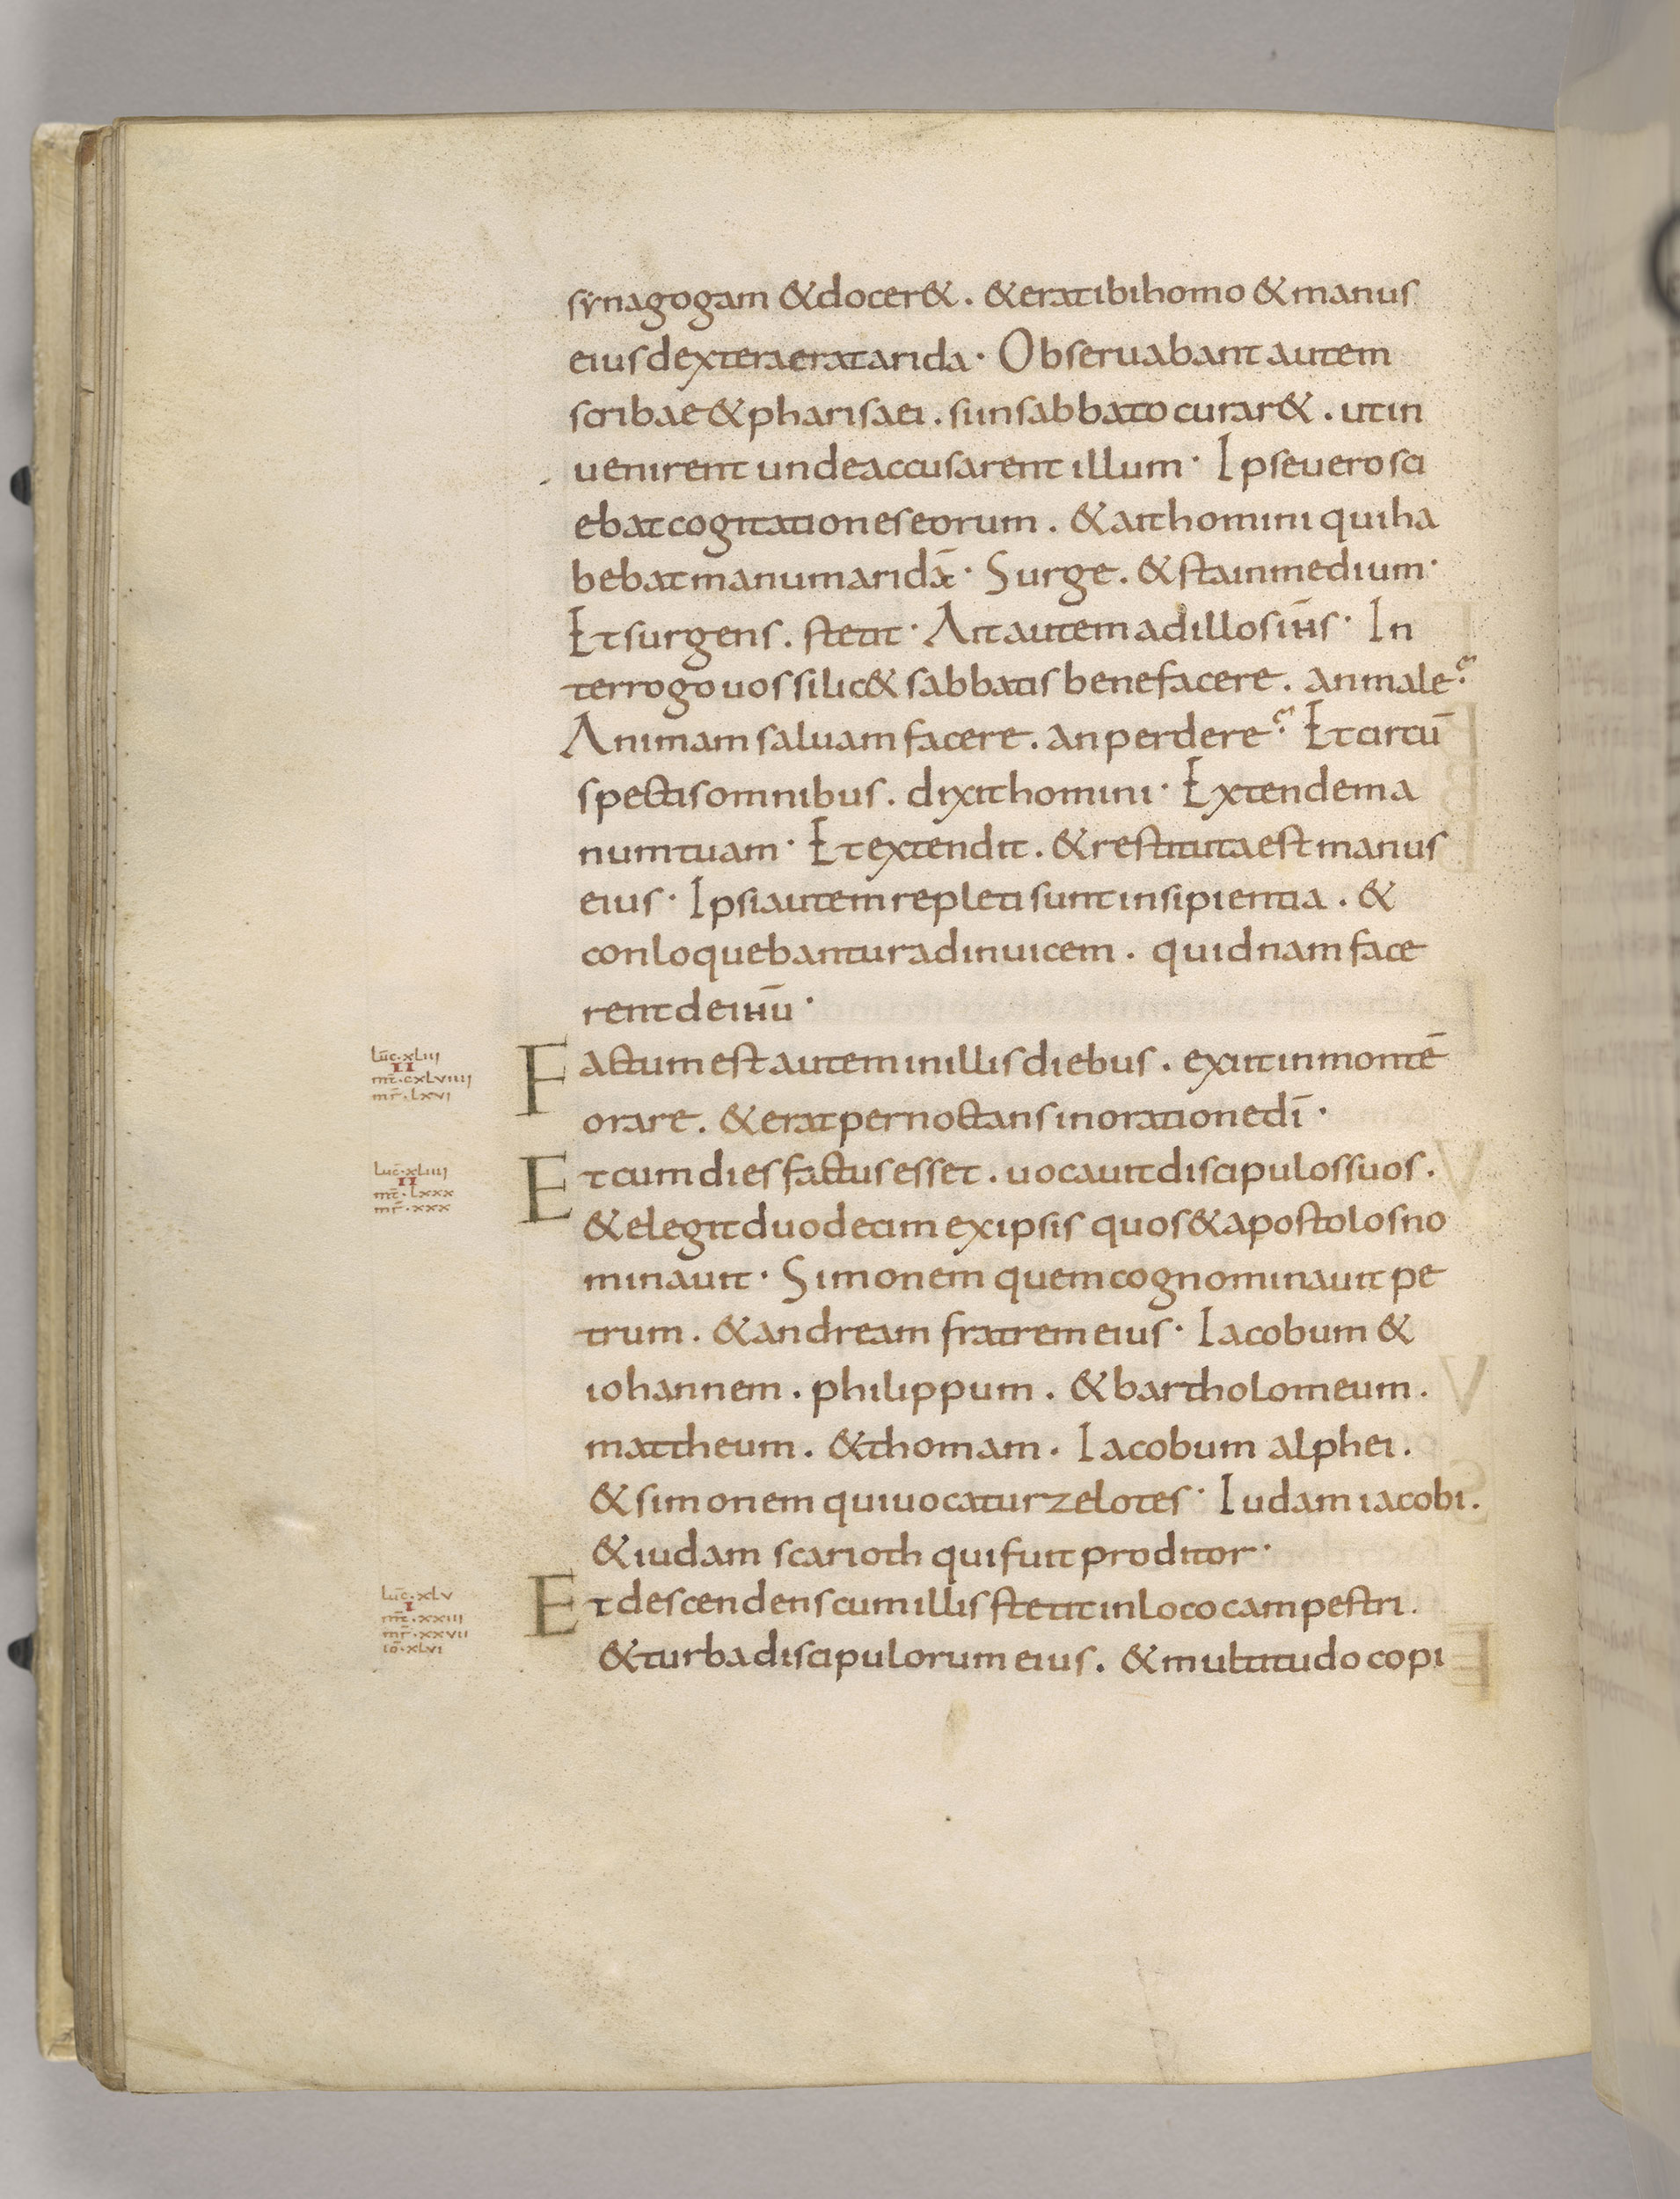 synagogam & docer&. & erat ibi homo & manus
eius dextera erat arida· Obseruabant autem
scribae & pharisaei. si in sabbato curar&. ut in
uenirent unde accusarent illum· Ipse uero sci
ebat cogitationes eorum. & ait homini qui ha
bebat manum aridā· Surge. & sta in medium·
Et surgens. stetit· Ait autem ad illos ih̄s· In
terrogo uos si lic& sabbatis bene facere. an male?
Animam saluam facere. an perdere? Et circū
spectis omnibus. dixit homini· Extende ma
num tuam· Et extendit. & restituta est manus
eius· Ipsi autem repleti sunt insipientia. &
conloquebantur ad inuicem. quidnam face
rent de ihū·
Luc̄·xLiii
II
mt̄·cxLviiii
mr̄·Lxvi
Factum est autem in illis diebus. exiit in montē
orare. & erat pernoctans in oratione dī·
Luc̄·xLiiii
II
mt̄·Lxxx
mr̄·xxx
Et cum dies factus esset. uocauit discipulos suos.
& elegit duodecim ex ipsis quos & apostolos no
minauit· Simonem quem cognominauit pe
trum. & andream fratrem eius· Iacobum &
iohannem. philippum. & bartholomeum.
mattheum. & thomam. Iacobum alphei.
& simonem qui uocatur zelotes· Iudam iacobi.
& iudam scarioth qui fuit proditor·
Luc̄·xLv
I
mt̄·xxiii
mr̄·xxvii
iō·xLvi
Et descendens cum illis stetit in loco campestri.
& turba discipulorum eius. & multitudo copi